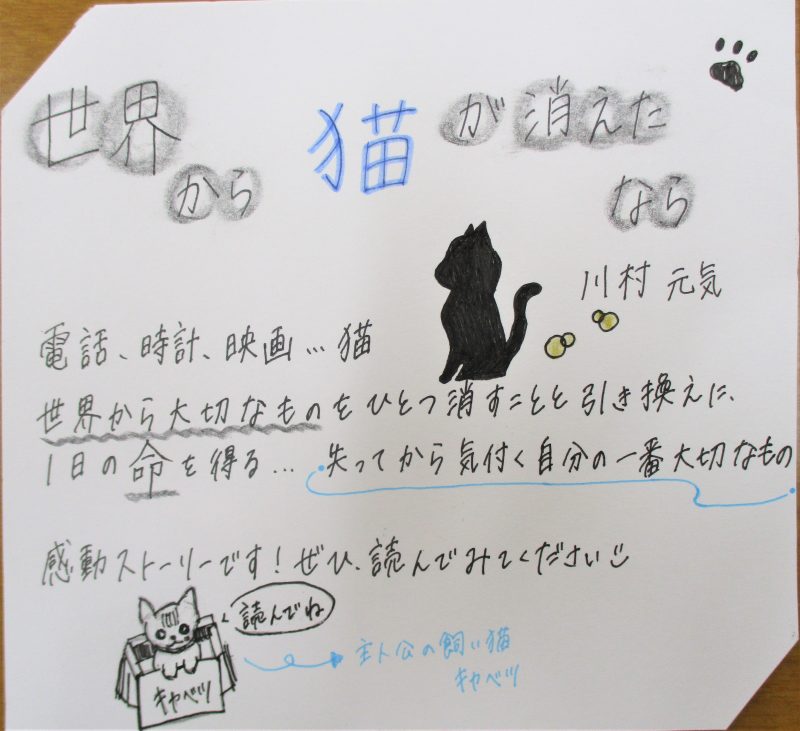 世界から猫が消えたなら
川村 元気
電話、時計、映画…猫
世界から大切なものをひとつ消すことと引き換えに、
1日の命を得る… 失ってから気付く自分の一番大切なもの
感動ストーリーです！ぜひ、読んでみてください
読んでね
キャベツ
主人公の飼い猫
キャベツ